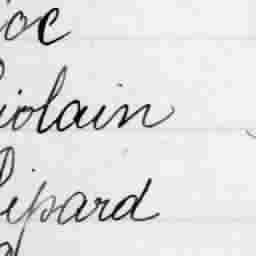 ioc
iolain
ipard